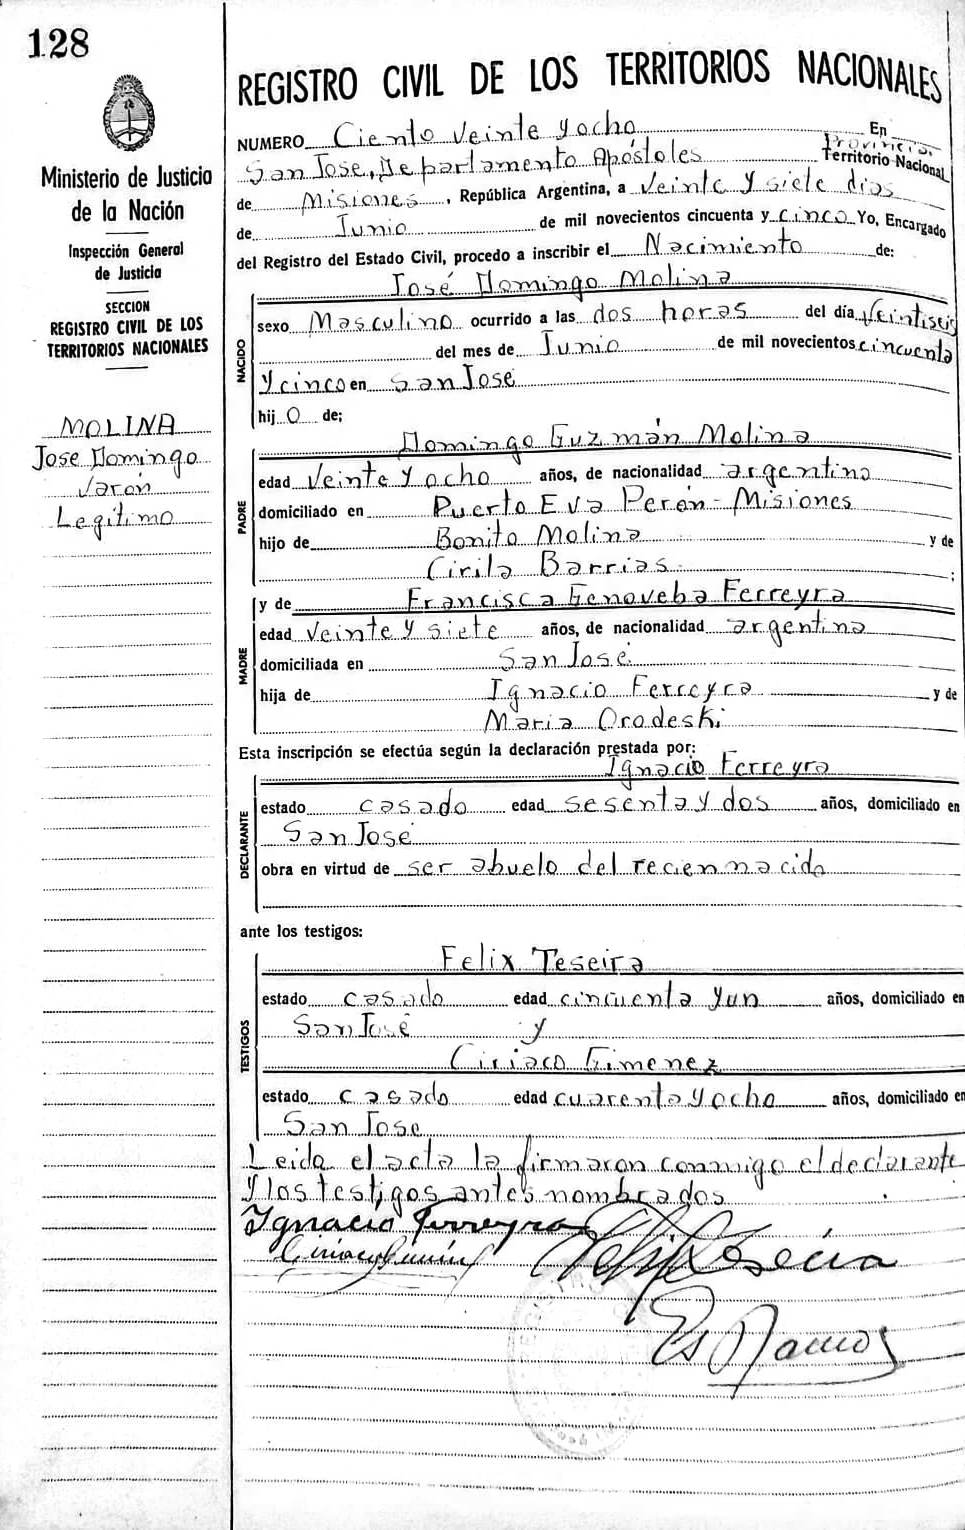 128
Ministerio de Justicia
de la Nación
Inspección General
de Justicia
SECCION
REGISTRO CIVIL DE LOS
TERRITORIOS NACIONALES
MOLINA
Jose Domingo
Varón
Legítimo
REGISTRO CIVIL DE LOS TERRITORIOS NACIONALES
NUMERO Ciento Veinte y ocho En
San Jose, Departamento Apóstoles Provincia Territorio Nacional
de Misiones, República Argentina, a Veinte y siete dias
de Junio de mil novecientos cincuenta y cinco Yo, Encargado
del Registro del Estado Civil, procedo a inscribir el Nacimiento de:
José Domingo Molina
NACIDO
sexo Masculino ocurrido a las dos horas del día Veintiseis
del mes de Junio de mil novecientos cincuenta
y cinco en San Jose
hij o de;
Domingo Guzmán Molina
PADRE
edad Veinte y ocho años, de nacionalidad argentina
domiciliado en Puerto Eva Perón - Misiones
hijo de Bonito Molina y de
Cirila Barrias ;
y de Francisca Genoveba Ferreyra
MADRE
edad Veinte y siete años, de nacionalidad argentina
domiciliada en San José
hija de Ignacio Ferreyra y de
Maria Oradeski
Esta inscripción se efectúa según la declaración prestada por:
Ignacio Ferreyra
DECLARANTE
estado casado edad sesenta y dos años, domiciliado en
San José
obra en virtud de ser abuelo del recien nacido
ante los testigos:
Felix Teseira
TESTIGOS
estado casado edad cincuenta y un años, domiciliado en
San José y
Ciriaco Gimenez
estado casado edad cuarenta y ocho años, domiciliado en
San Jose
Leida el acta la firmaron conmigo el declarante
y los testigos antes nombrados
Ignacio Ferreyra